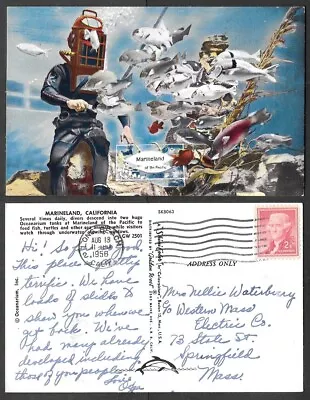 Marineland
of the Pacific
MARINELAND, CALIFORNIA
Several times daily, divers descend into two huge
Oceanarium tanks at Marineland of the Pacific to
feed fish, turtles and other sea animals while visitors
watch through underwater viewing windows.
GW 2501
SK8063
AUG 13
11 AM
1956
CALIF
2¢
ADDRESS ONLY
© Oceanarium, Inc.
Hi! So far
this place is pretty
terrific. We have
loads of slides to
show you whenever
we get back. We've
had many already
developed including
those of your people.
Love
Mrs Nellie Waterbury
% Western Mass
Electric Co.
73 State St
Springfield
Mass.